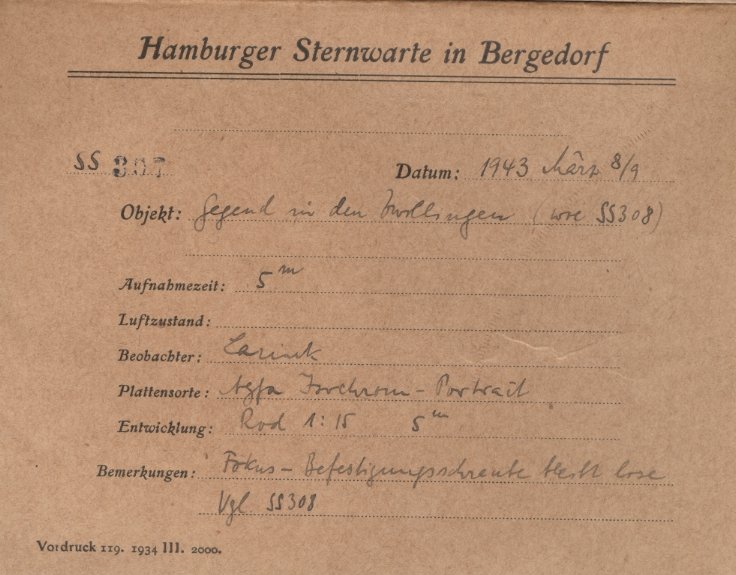 Hamburger Sternwarte in Bergedorf
SS 307 Datum: 1943 März 8/9
Objekt: Gegend in den Zwillingen (wie SS308)
Aufnahmezeit: 5 m
Luftzustand:
Beobachter: Larink
Plattensorte: Agfa Isochrom - Portrait
Entwicklung: Rod 1:15 5 m
Bemerkungen: Fokus - Befestigungsschraube bleibt lose
Vgl SS308
Vordruck 119. 1934 III. 2000.